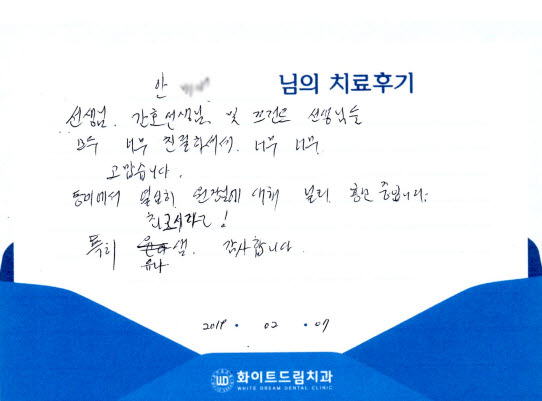 안 님의 치료후기
선생님, 간호선생님, 및 프런트 선생님들
모두 너무 친절하셔서, 너무 너무
고맙습니다.
동네에서 열심히 원장님에 대해 널리 홍보 중입니다.
최고시라고!
특히 샘. 감사합니다.
유나
2019 · 02 · 07
WD 화이트드림치과
WHITE DREAM DENTAL CLINIC